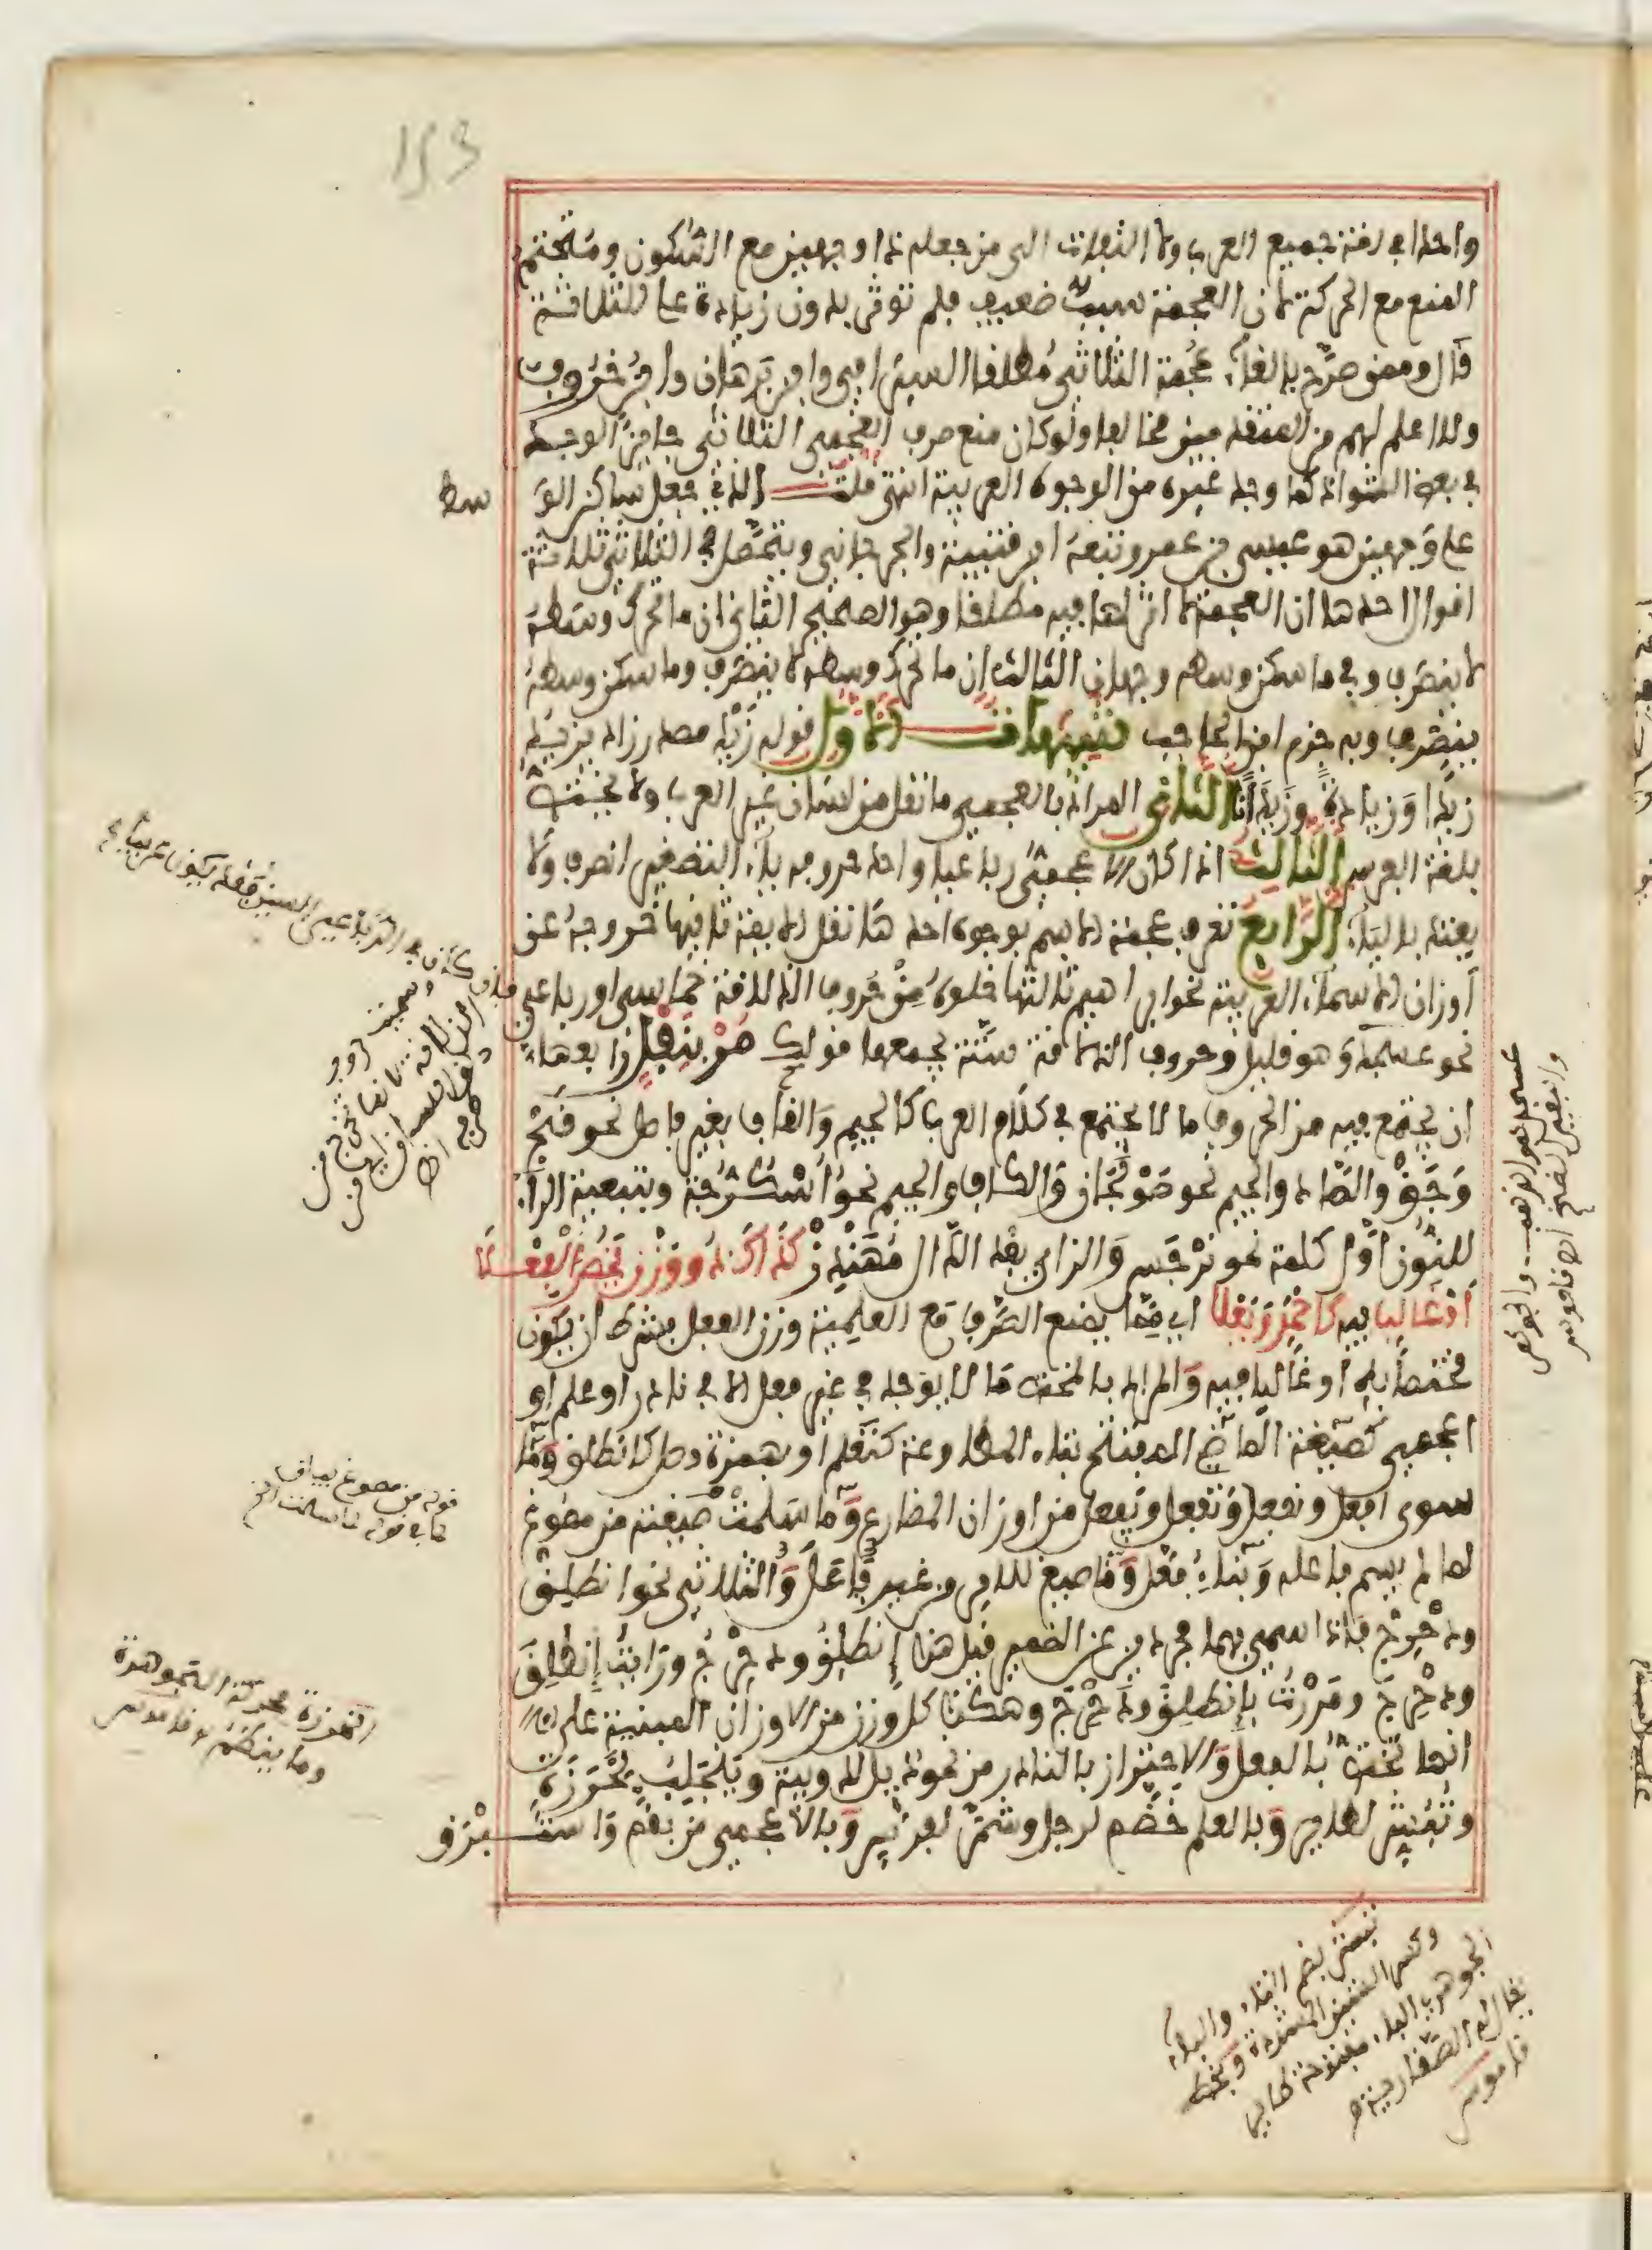 واحدا في لغة جميع العرب ولا التفات الى من جعله ذا وجهين مع السكون ومتحتم
المنع مع الحركة لان العجمة سبب ضعيف فلم تؤثر بدون زيادة على الثلاثة
قال وممن صرح بالغاء عجمة الثلاثي مطلقا السيرافي وابن برهان وابن خروف
ولا اعلم لهم من المتقدمين مخالفا ولو كان منع صرف العجمي الثلاثي جائزا لوجد
في بعض الشواذ كما وجد غيره من الوجوه الغريبة انتهى قلت الذي جعل ساكن الو
سط
على وجهين هو عيسى بن عمر وتبعه ابن قتيبة والجرجاني ويتحصل في الثلاثي ثلاثة
اقوال احدها ان العجمة لا اثر لها فيه مطلقا وهو الصحيح الثاني ان ما تحرك وسطه
لا ينصرف وفي ما سكن وسطه وجهان الثالث ان ما تحرك وسطه لا ينصرف وما سكن وسطه
ينصرف وبه جزم ابن الحاجب تنبيهات الاول قوله زيد مصدر زاد يزيد
زيدا وزيادة وزيدانا الثاني المراد بالعجمي ما نقل من لسان غير العرب ولا يختص
بلغة الفرس الثالث اذا كان الاعجمي رباعيا واحد حروفه ياء التصغير انصرف ولا
يعتد بالياء الرابع تعرف عجمة الاسم بوجوه احدها نقل الايمة ثانيها خروجه عن
اوزان الاسماء العربية نحو ابراهيم ثالثها خلوه من حروف الذلاقة خماسي او رباعي
نحو عسجد وهو قليل وحروف الذلاقة ستة يجمعها قولك مر بنفل رابعها
ان يجتمع فيه من الحروف ما لا يجتمع في كلام العرب كالجيم والقاف بغير فاصل نحو قج
وجق والصاد والجيم نحو صولجان والكاف والجيم نحو أسكرجة وتبعية الراء
للنون اول كلمة نحو نرجس والزاي بعد الدال مهندز كذاك ذو وزن يخص الفعلا
او غالب فيه كاحمر ويعلا اي مما يمنع الصرف مع العلمية وزن الفعل بشرط ان يكون
مختصا به او غالبا فيه والمراد بالمختص ما لا يوجد في غير فعل الا في نادر او علم او
اعجمي كصيغة الماضي المفتتح بتاء المطاوعة كتعلم او بهمزة وصل كانطلق وما
سوى افعل ونفعل وتفعل ويفعل من اوزان المضارع وما سلمت صيغته من مصوغ
لما لم يسم فاعله وبناء فعل وما صيغ للامر من غير فاعل والثلاثي نحو انطلق
ودحرج فاذا سمي بهما مجردين عن الضمير قيل هذا إنطلق ودحرج ورايت إنطلق
ودحرج ومررت بإنطلق ودحرج وهكذا كل وزن من الاوزان المبنية على
انها تختص بالفعل والاحتراز بالنادر من نحو دئل لدويبة وينجلب لخرزة
وتبشر لطاير وبالعلم خضم لرجل وشمر لفرس وبالاعجمي من بقم واستبرق
قوله من مصوغ
كما في قوله
الخرزة محركة الجوهرة
وما ينظم قاموس
عسجد كجعفر الذهب والجوهر
قاموس
تبشر بضم التاء والباء
وكسر الشين المشددة وبخط
الجوهري الباء مفتوحة طاير
يقال له الصفارية
قاموس